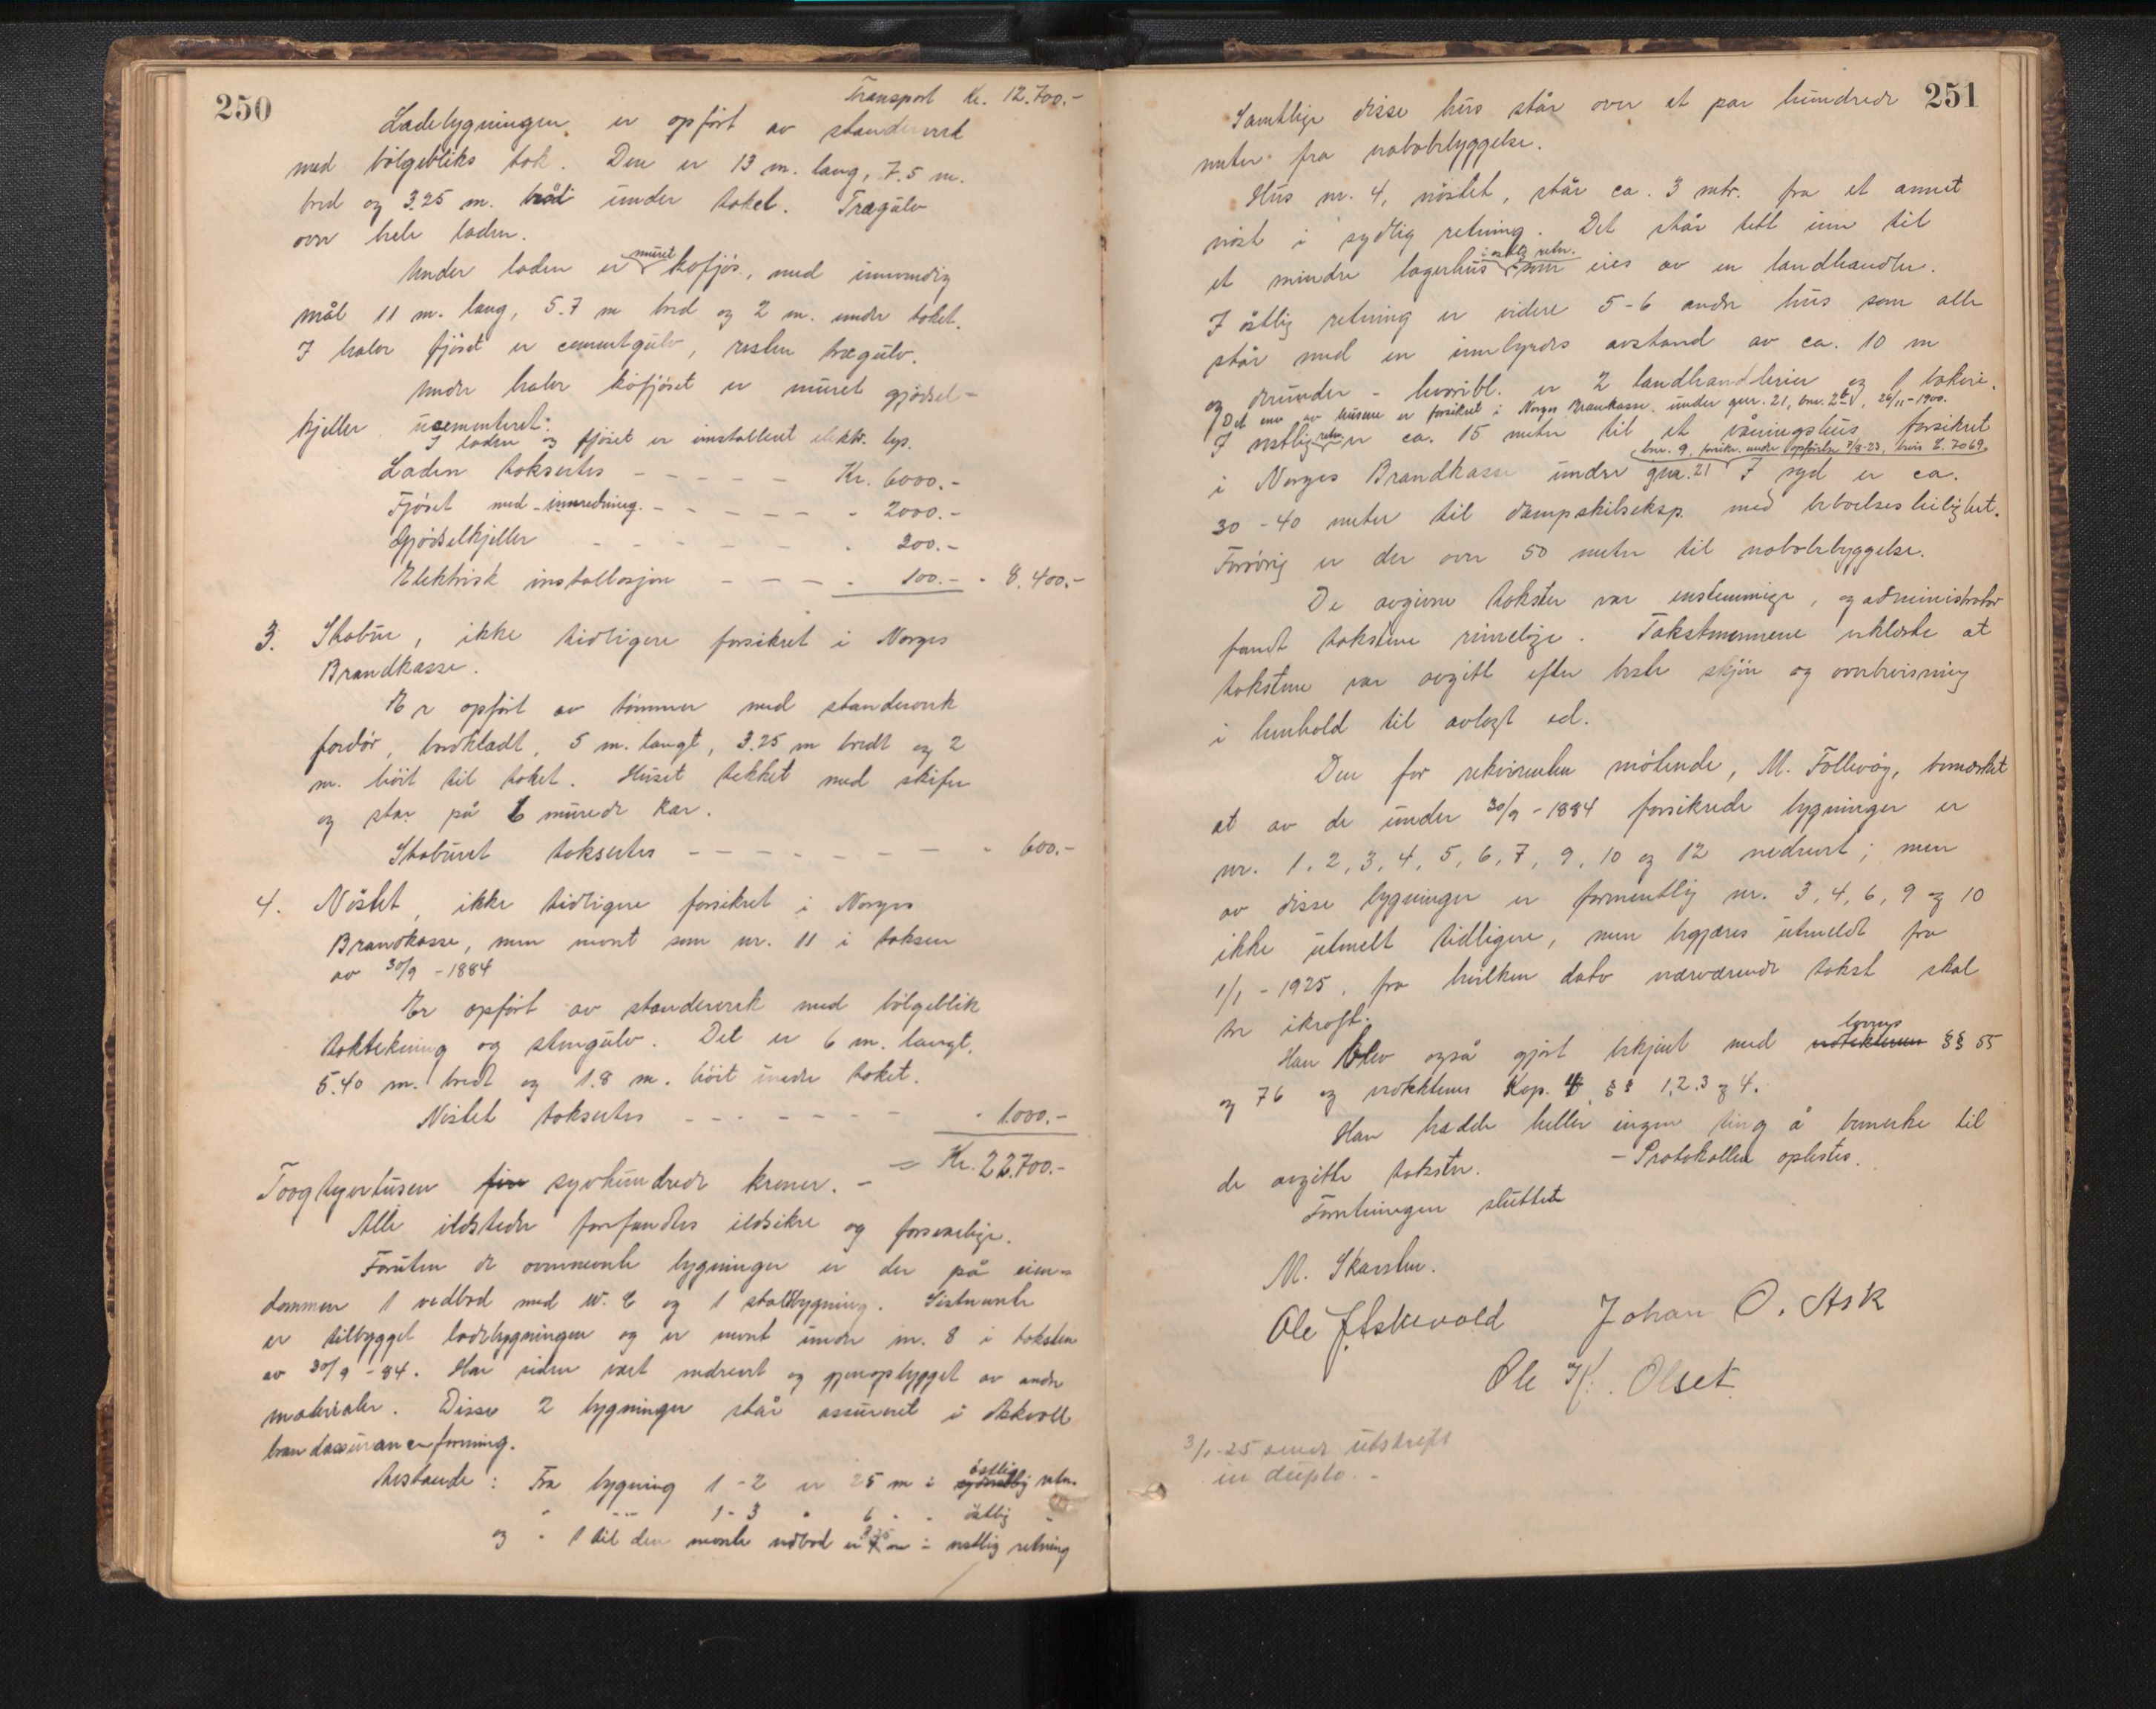 250
Transport Kr. 12.700.-
Ladebygningen er opfört av standerverk
med bölgebliks tak. Den er 13 m. lang, 7.5 m.
bred og 3.25 m. under taket. Trægulv
over hele laden.
Under laden er muret kofjös, med innvendig
mål 11 m. lang, 5.7 m bred og 2 m. under taket.
I halve fjöset er cementgulv, resten trægulv.
Under halve kofjöset er muret gjödsel-
kjeller usementeret.
I laden og fjöset er installeret elektr. lys.
Laden takseres - - - - - Kr. 6000.-
Fjöset med innredning - - - - - - 2000.-
Gjödselkjeller - - - - - - 300.-
Elektrisk installasjon - - - - 100.- - 8.400.-
3. Stabur, ikke tidligere forsikret i Norges
Brandkasse.
Er opfört av tömmer med standerverk
fordör, bordkledt, 5 m. langt, 3.25 m bredt og 2
m. höit til taket. Huset tekket med skifer
og står på 6 murede kar.
Staburet takseres - - - - - - - - - 600.-
4. Nöstet, ikke tidligere forsikret i Norges
Brandkasse, men nevnt som nr. 11 i taksten
av 30/9 - 1884
Er opfört av standerverk med bölgeblik
taktekning og stengulv. Det er 6 m. langt,
5.40 m. bredt og 1.8 m. höit under taket.
Nöstet takseres - - - - - - - - 1.000.-
= Kr. 22.700.-
Toogtyvetusen fire syvhundrede kroner. -
Alle ildsteder forefandtes ildsikre og forsvarlige.
Foruten de ovennevnte bygninger er der på eien-
dommen 1 vedbod med W.C og 1 staldbygning. Sistnevnte
er tilbygget ladebygningen og er nevnt under nr. 8 i taksten
av 30/9 - 84. Har siden vært nedrevet og gjenopbygget av andre
materialer. Disse 2 bygninger står assureret i Askvoll
brandassuranceforening.
Avstande: Fra bygning 1 - 2 er 25 m i östlig retn.
" -- 1 - 3 " 6 " - östlig "
og " 1 til den nevnte vedbod er 3.25 m i vestlig retning
251
Samtlige disse hus står over et par hundrede
meter fra nabobebyggelse.
Hus nr. 4, nöstet, står ca. 3 mtr. fra et annet
nöst i sydlig retning. Det står tett inn til
et mindre lagerhus i östlig retn. som eies av en landhandler.
I östlig retning er videre 5-6 andre hus som alle
står med en innbyrdes avstand av ca. 10 m
og derunder - hvoribl. er 2 landhandlerier og 1 bakeri.
(Det ene av husene er forsikret i Norges Brankasse under gnr. 21, bnr. 2, 26/11 - 1900.
I vestlig retn. er ca. 15 meter til et våningshus forsikret
i Norges Brandkasse under gnr. 21 bnr. 9, forsikr. under opförelse 7/8-23, brevs L. 7069. I syd er ca.
30 - 40 meter til dampskibseksp. med beboelsesleilighet.
Forövrig er der over 50 meter til nabobebyggelse.
De avgivne takster var enstemmige, og administrator
fandt takstene rimelige. Takstmennene erklærte at
takstene var avgitt efter beste skjön og overbevisning
i henhold til avlagt ed.
Den for rekvirenten mötende, M. Follevåg, bemerket
at av de under 30/9 - 1884 forsikrede bygninger er
nr. 1, 2, 3, 4, 5, 6, 7, 9, 10 og 12 nedrevet; men
av disse bygninger er formentlig nr. 3, 4, 6, 9 og 10
ikke utmelt tidligere, men begjæres utmeldt fra
1/1 - 1925, fra hvilken dato nærværende takst skal
tre ikraft.
Han blev også gjort bekjent med vedtektenes lovens §§ 55
og 76 og vedtektenes Kap. 4 §§ 1, 2, 3 og 4.
Han hadde heller ingen ting å bemerke til
de avgitte takster. - Protokollen oplestes.
Forretningen sluttet
M. Skarsten.
Ole J. Askevold Johan O. Ask
Ole K. Olset
3/1-25 sendt utskrift
in duplo. -